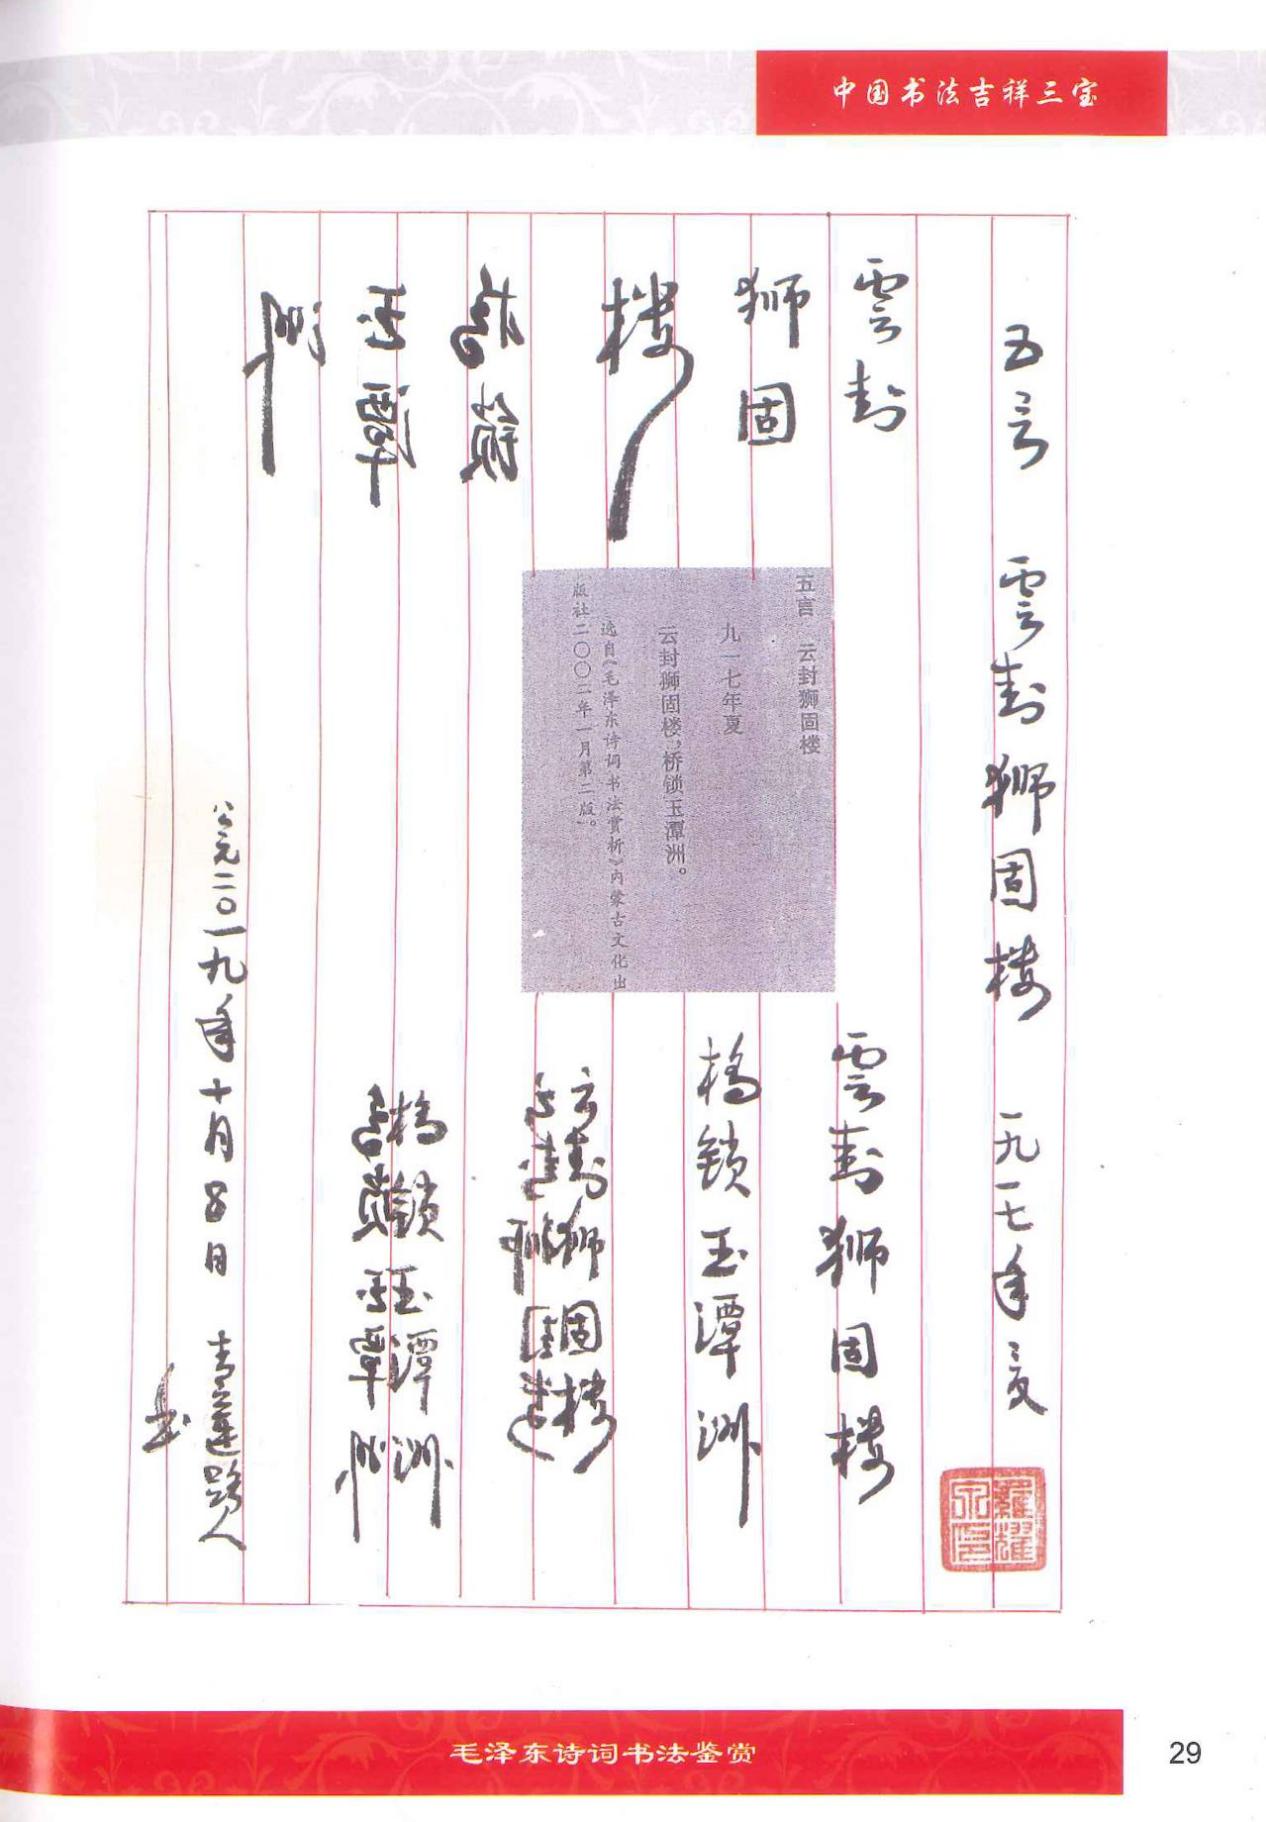 中国书法吉祥三宝
五言 雲封狮固楼 一九一七年夏
雲封
狮固
楼
桥锁
玉潭
洲
五言 云封狮固楼
九一七年夏
云封狮固楼,桥锁玉潭洲。
选自《毛泽东诗词书法赏析》内蒙古文化出
版社二〇〇二年一月第二版。
雲封狮固楼
橋锁玉潭洲
云封狮固楼
橋锁玉潭洲
公元二〇一九年十月8日 青莲路人
毛泽东诗词书法鉴赏
29